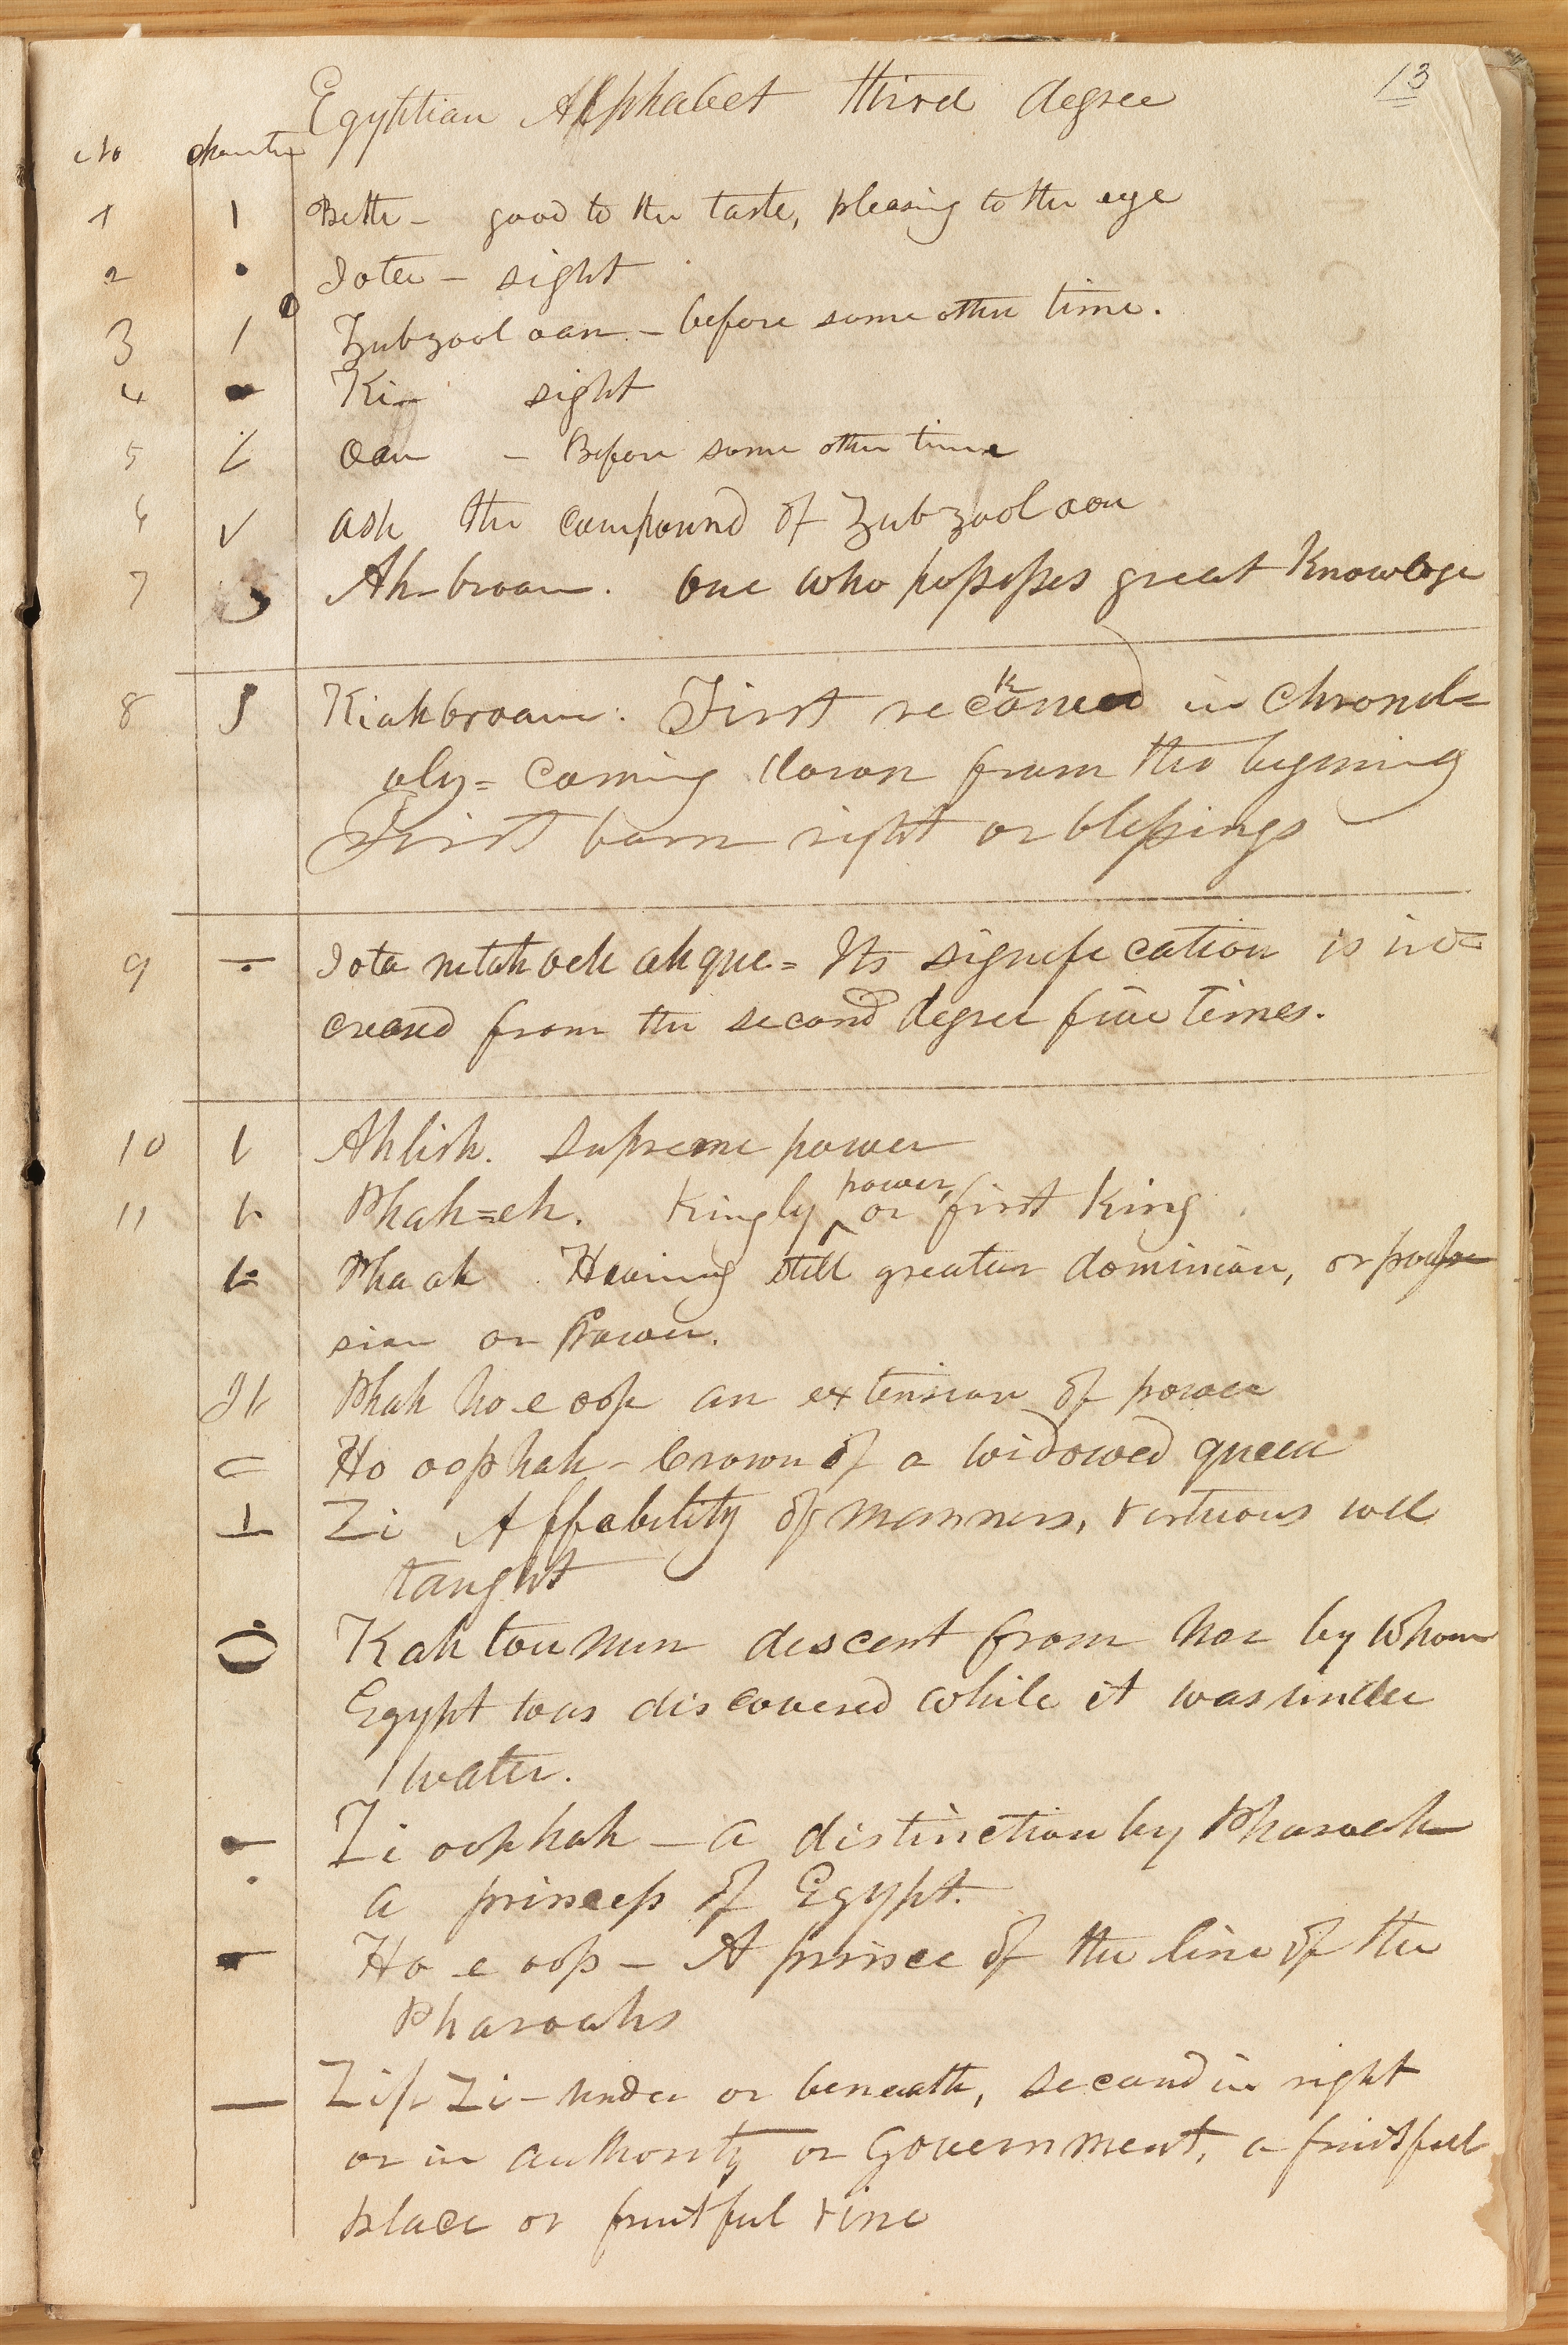 13
Egyptian Alphabet third degree
No
1 Beth - good to the taste, pleasing to the eye
2 Iota - sight
3 Zubzool oan - before some other time.
4 Ki - sight
5 oan - Before some other time
6 ash the compound of Zubzool oan
7 Ah-broam. one who possesses great Knowloge
8 Kiahbroam: First reckoned in chronol=
oly = coming down from the begining
First born right or blessings
9 Iota netah och ah que = Its signification is in=
creased from the second degree five times.
10 Ahlish. supreme power
11 Phah=eh. Kingly power, or first King
Pha ah. Having still greater dominion, or
sion or Power.
Phah ho e oop an extension of power
Ho oophah - Crown of a widowed queen
Zi Affability of manners, virtuous well
taught
Kah tou mun descent from her by whom
Egypt was discovered while it was under
water.
Zi oophah - a distinction by Pharoah
a princess of Egypt.
Ho e oop - A prince of the line of the
Pharoahs
Zip Zi - under or beneath, second in right
or in authority or Government, a fruitful
place or fruitful vine